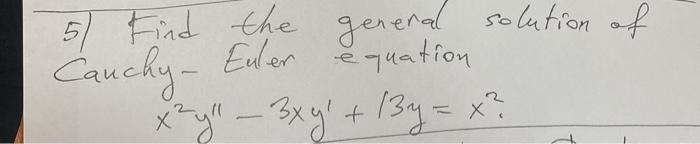 5/ Find the general solution of
Cauchy- Euler equation
x²y'' - 3xy' + 13y = x².